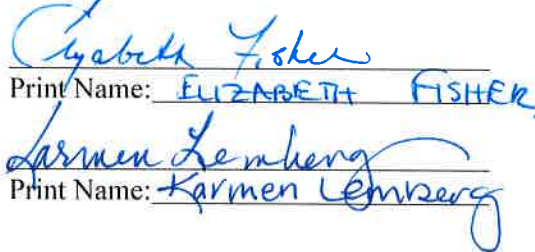 Elyabeth Fisher
Print Name: ELIZABETH FISHER
Karmen Lemberg
Print Name: Karmen Lemberg